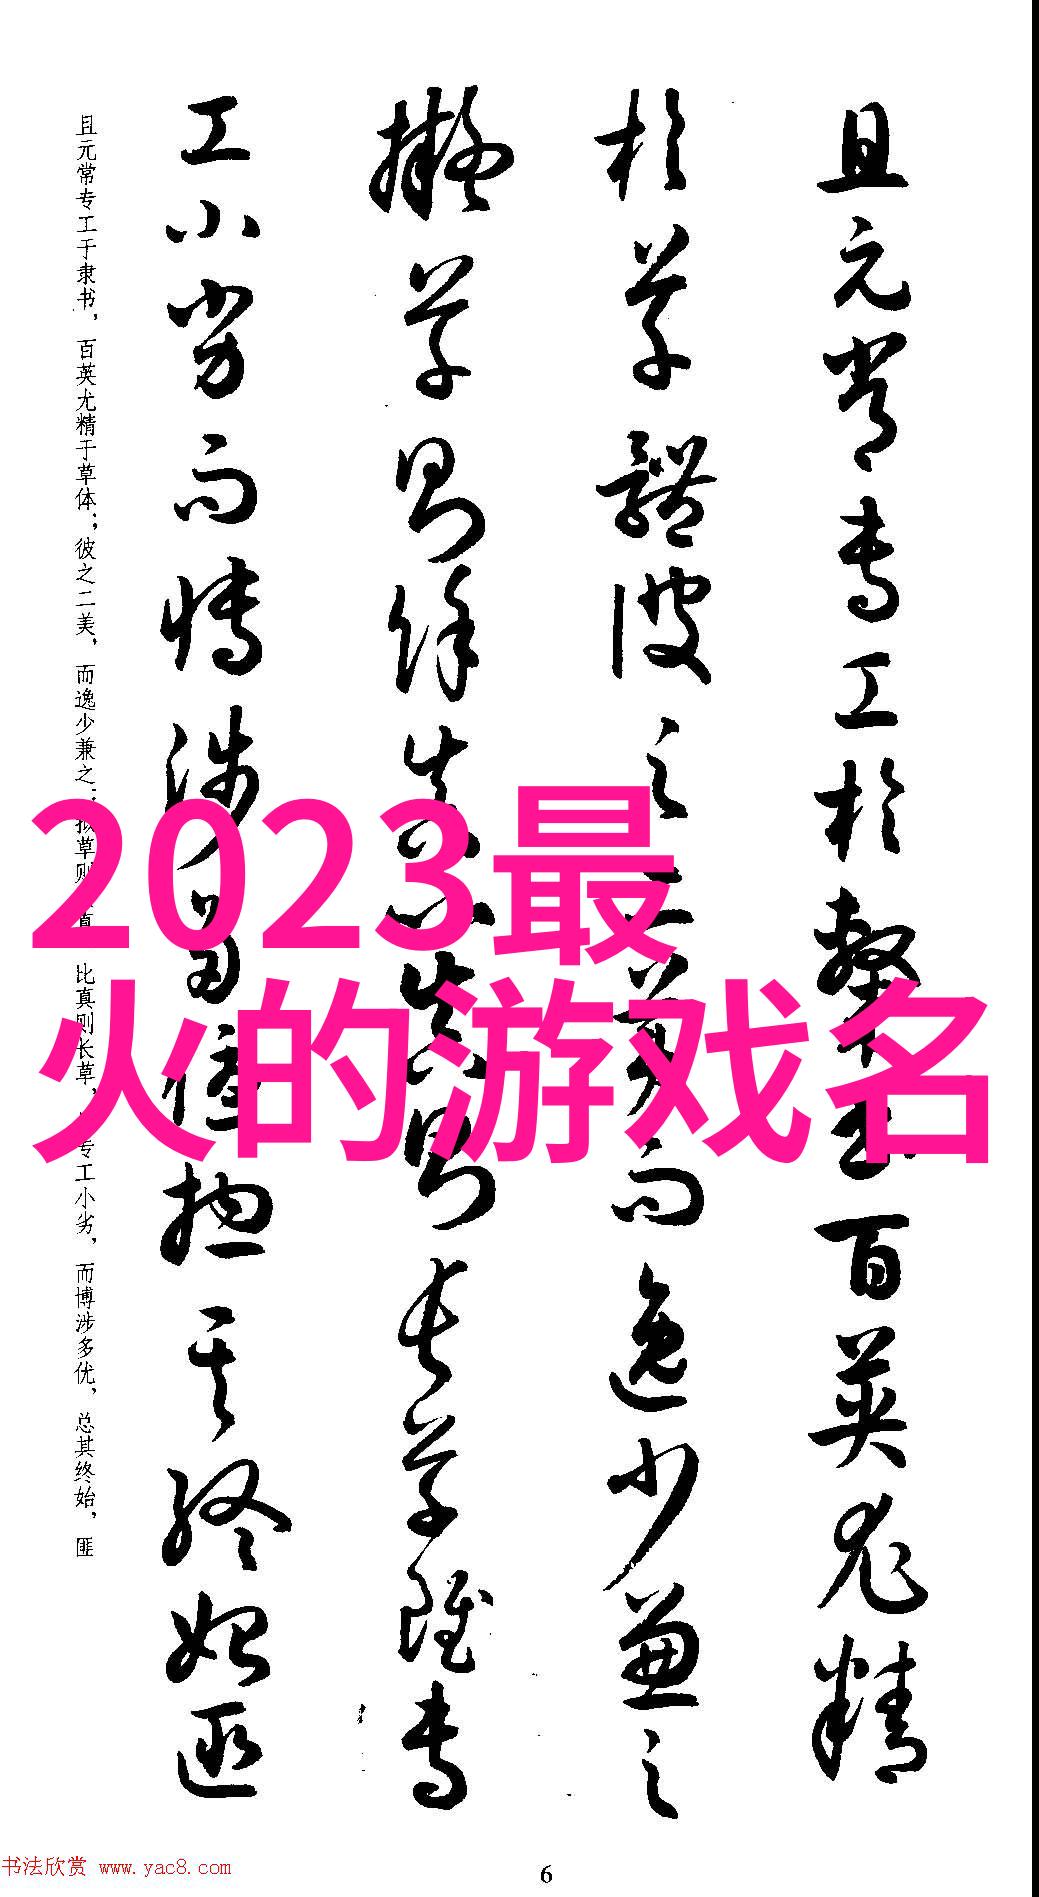 且元常專工於隸書百英尤精
於草體彼之二美而逸少兼之
擬草則餘真比真則長草雖專
工小劣而博涉多優揔其終始匪
且元常专工于隶书，百英尤精于草体；彼之二美，而逸少兼之：拟草则真，比真则长草，专工小劣，而博涉多优，总其终始，匪
2023最
火的游戏名
书法欣赏 www.yac8.com
6